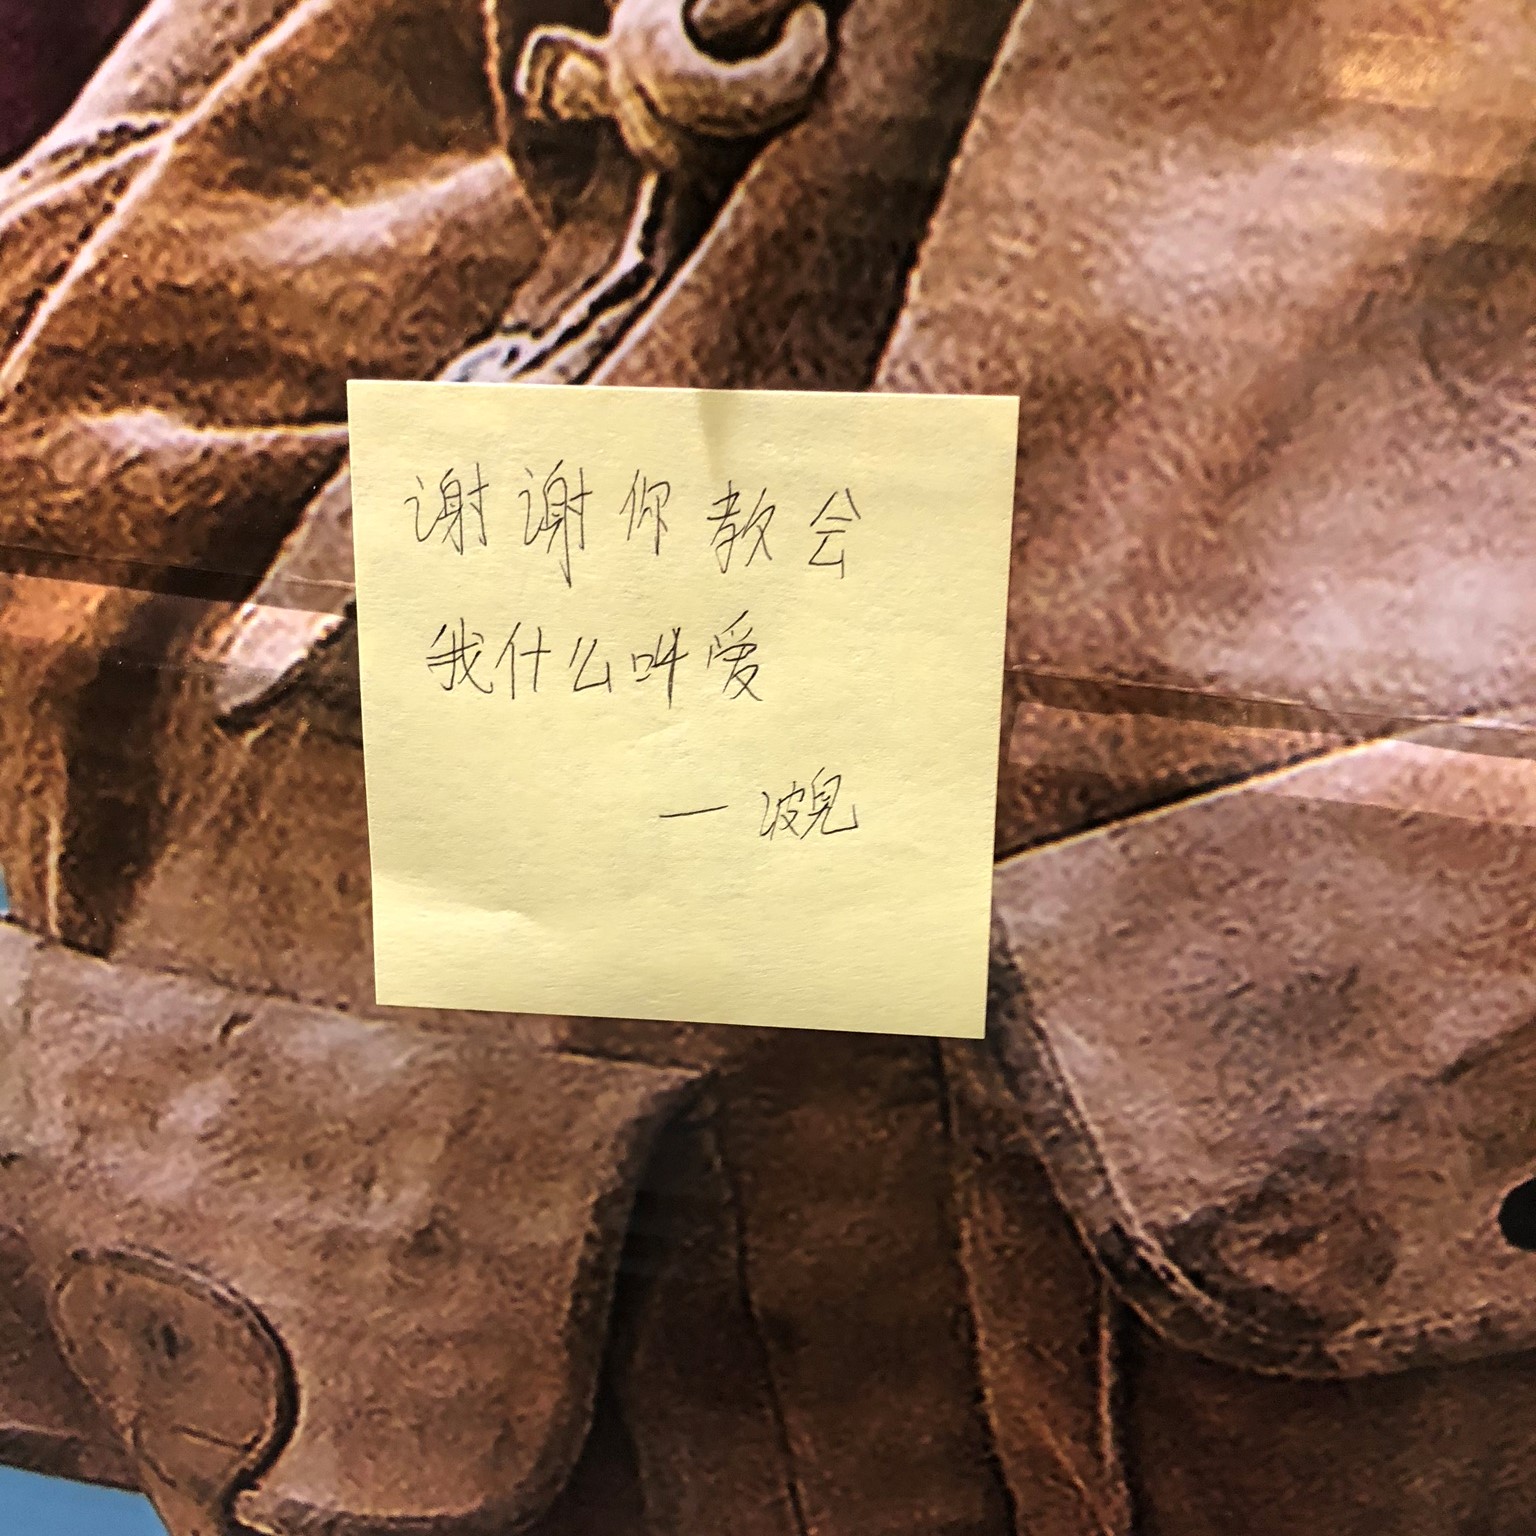 谢谢你教会
我什么叫爱